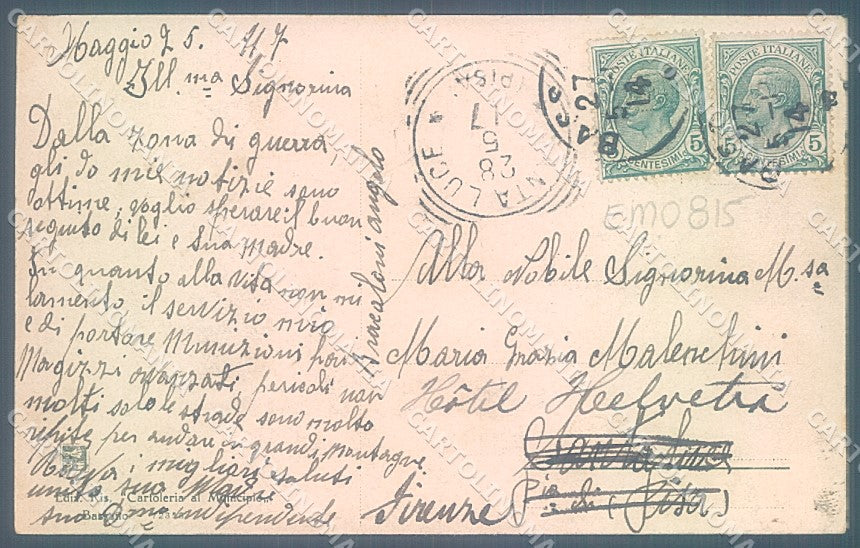 Maggio 25. 917
Ill.ma Signorina
Dalla zona di guerra,
gli do mie notizie sono
ottime, voglio sperare il buon
seguito di lei e Sua Madre.
In quanto alla vita non mi
lamento il servizio mio
e di portare Munizioni pari
Magizzi avanzati, pericoli non
molti solo le strade sono molto
repite per andar in grandi montagne.
i migliori saluti
unito sua
suo Dmo indipendente
Bracaloni angelo
Luiz. Ris. Cartoleria al Municipio
Bassano
SANTA LUCE
(PISA)
28 5 17
BASS
27 5 14
POSTE ITALIANE
5 CENTESIMI 5
POSTE ITALIANE
CENTESIMI 5
EM0815
Alla Nobile Signorina M.sa
Maria Grazia Malenchini
Hôtel Helvetia
Santa Luce
(Pisa)
Firenze
CARTOLINOMANIA